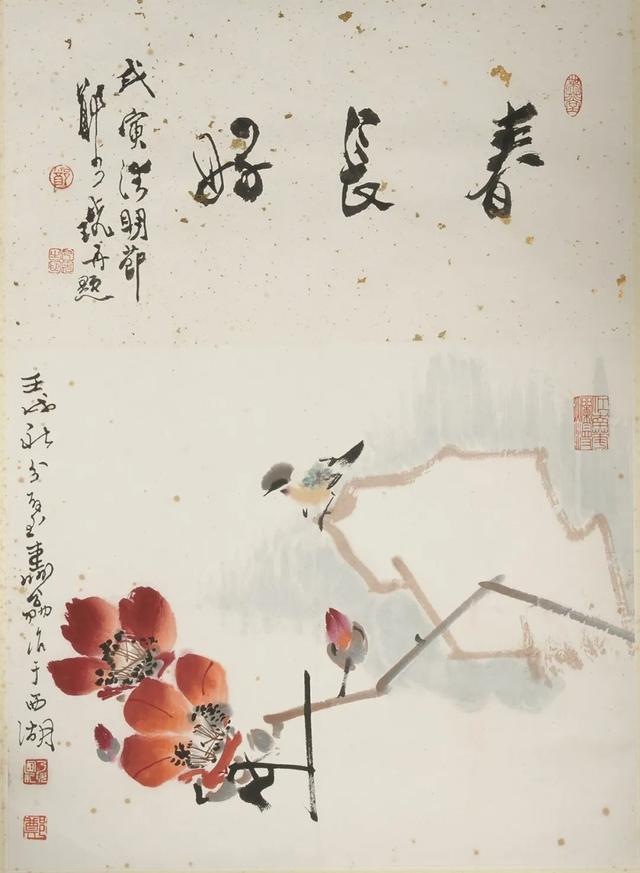 春長好
戊寅清明節
鄭乃珖再題
壬戌秋分璧壽翁作于西湖